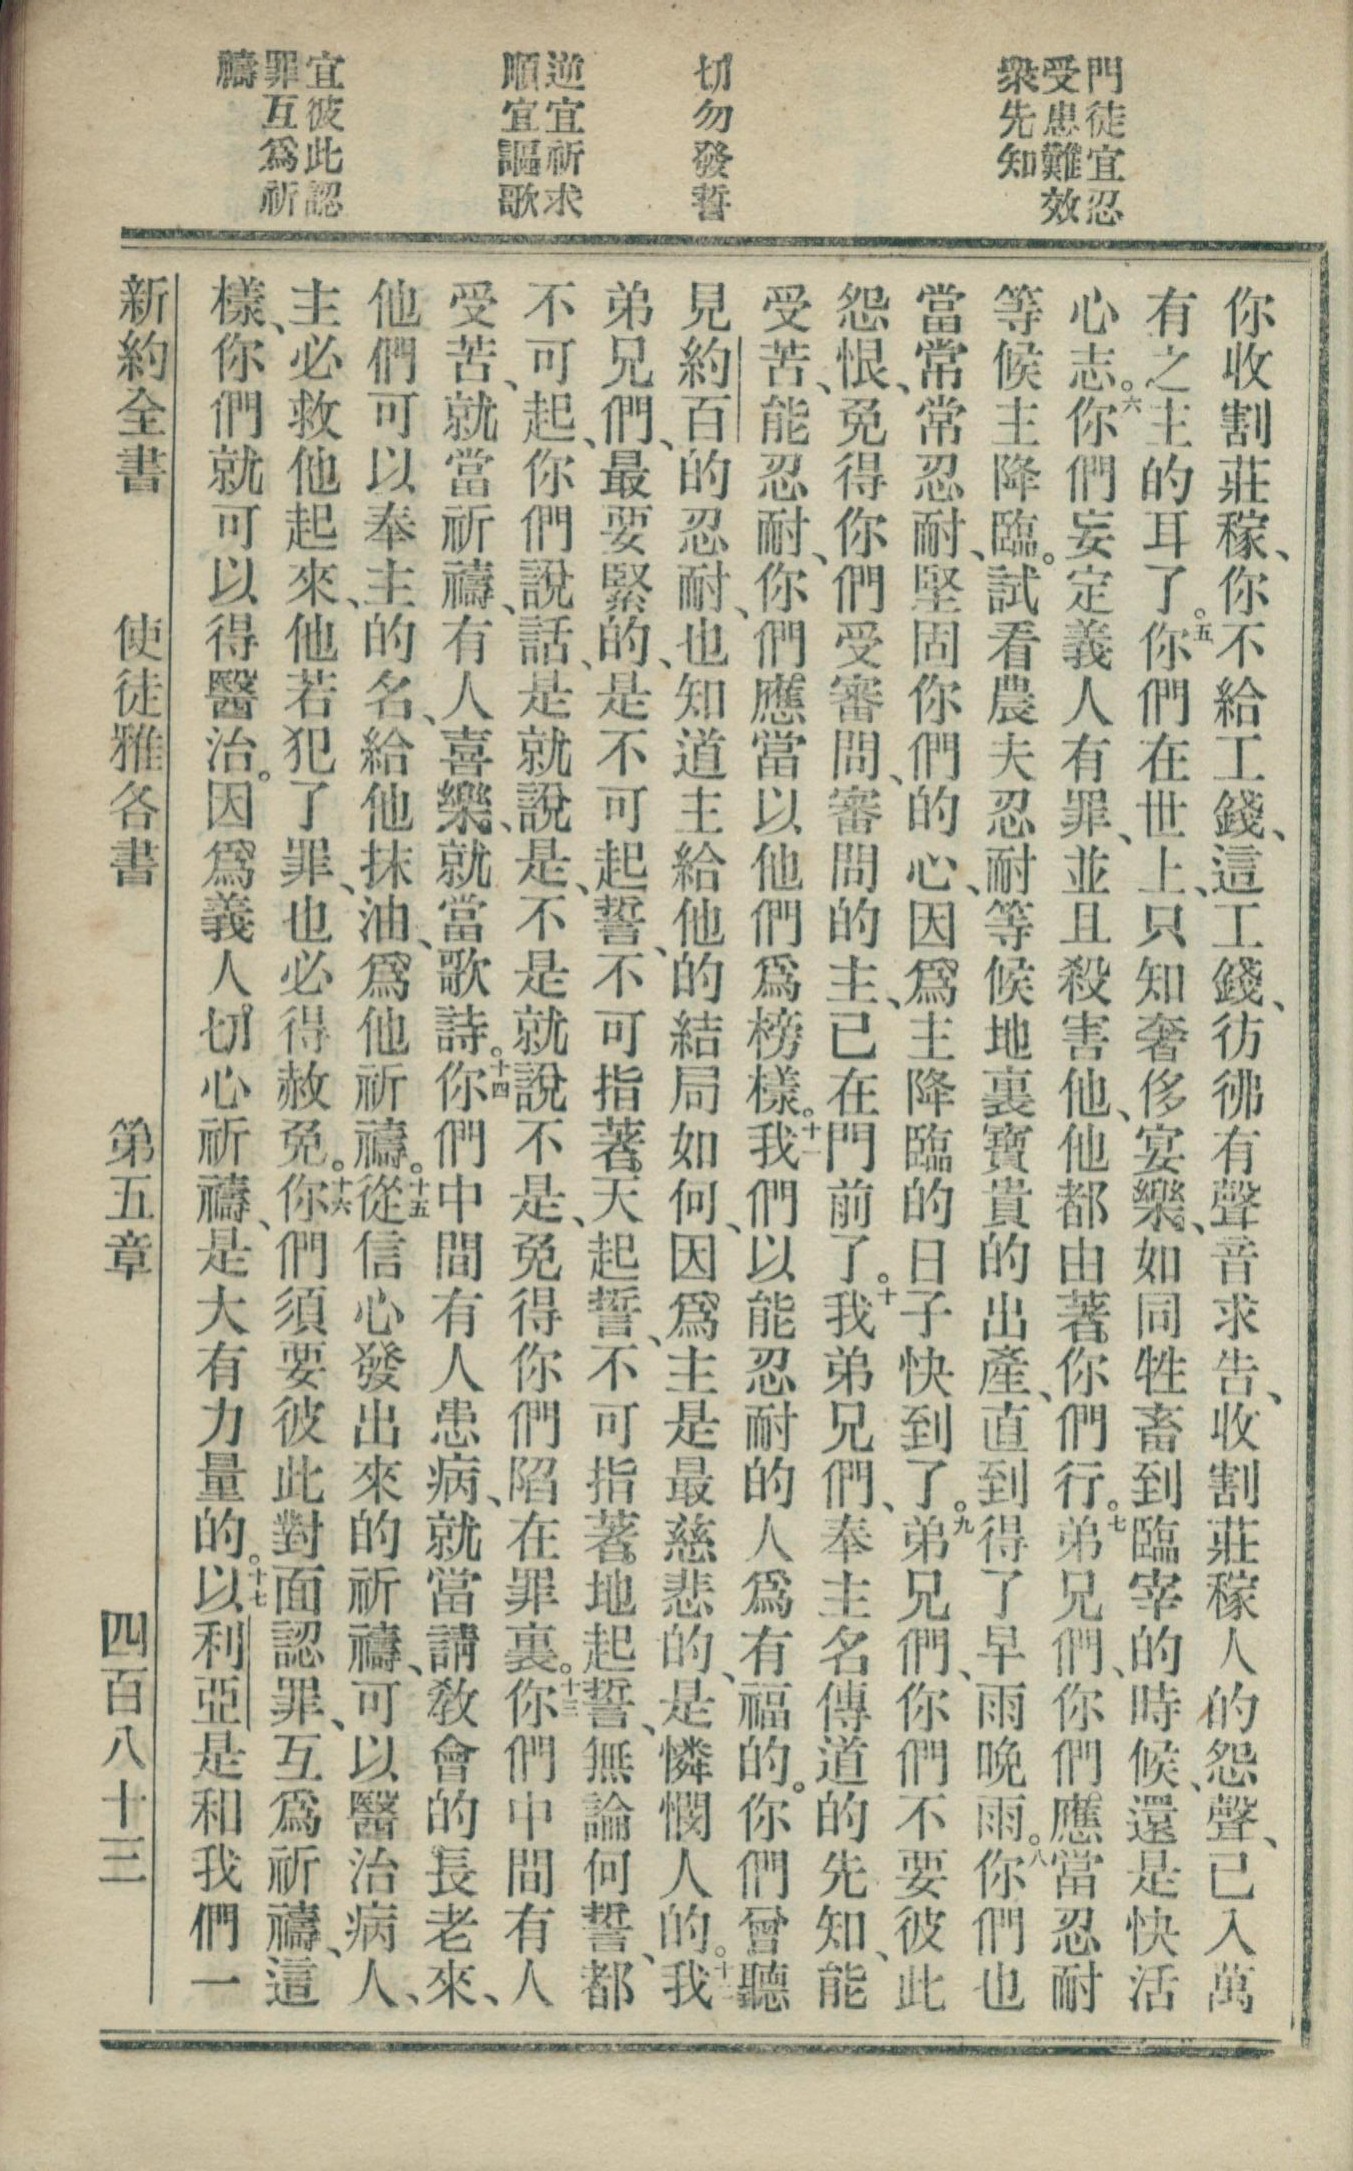 門徒宜忍
受患難效
衆先知
切勿發誓
逆宜祈求
順宜謳歌
宜彼此認
罪互爲祈
禱
你收割莊稼、你不給工錢、這工錢、彷彿有聲音求告、收割莊稼人的怨聲、已入萬
有之主的耳了。五你們在世上、只知奢侈宴樂、如同牲畜到臨宰的時候、還是快活
心志。六你們妄定義人有罪、並且殺害他、他都由著你們行。七弟兄們、你們應當忍耐
等候主降臨。試看農夫忍耐等候地裏寶貴的出產、直到得了早雨晚雨。八你們也
當常常忍耐、堅固你們的心、因爲主降臨的日子快到了。九弟兄們、你們不要彼此
怨恨、免得你們受審問、審問的主、已在門前了。十我弟兄們、奉主名傳道的先知、能
受苦、能忍耐、你們應當以他們爲榜樣。十一我們以能忍耐的人爲有福的。你們曾聽
見約百的忍耐、也知道主給他的結局如何、因爲主是最慈悲的、是憐憫人的。十二我
弟兄們、最要緊的、是不可起誓、不可指著天起誓、不可指著地起誓、無論何誓、都
不可起、你們說話、是就說是、不是就說不是、免得你們陷在罪裏。十三你們中間有人
受苦、就當祈禱、有人喜樂、就當歌詩。十四你們中間有人患病、就當請教會的長老來、
他們可以奉主的名、給他抹油、爲他祈禱。十五從信心發出來的祈禱、可以醫治病人、
主必救他起來、他若犯了罪、也必得赦免。十六你們須要彼此對面認罪、互爲祈禱、這
樣、你們就可以得醫治。因爲義人切心祈禱、是大有力量的。十七以利亞是和我們一
新約全書 使徒雅各書 第五章 四百八十三